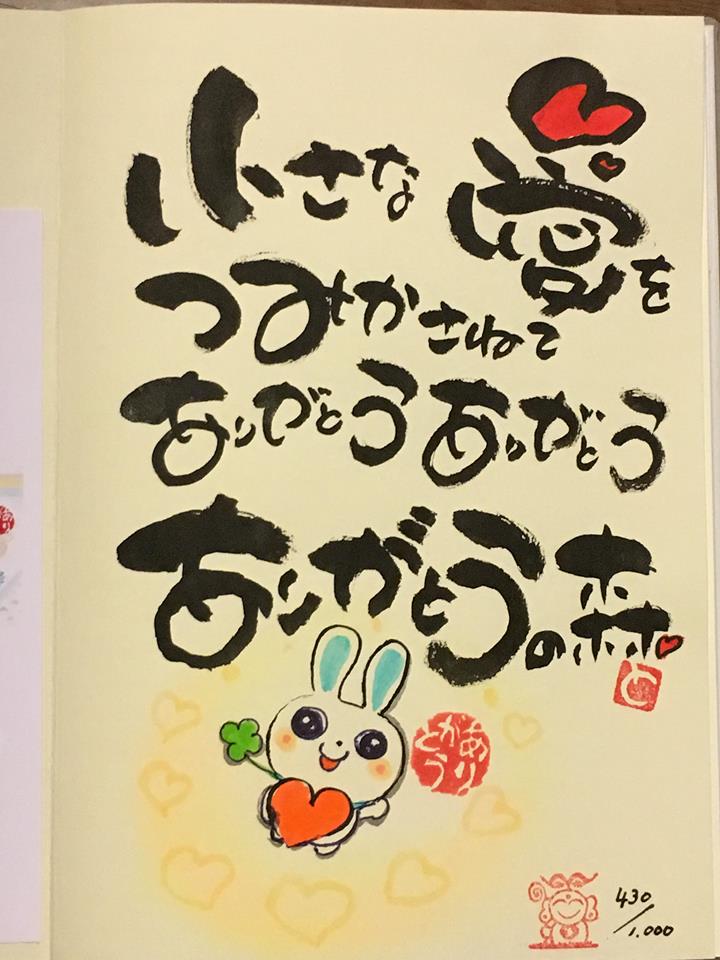 小さな夢を
つみかさねて
ありがとうありがとう
ありがとうの森
と
ありがとう
430/1.000